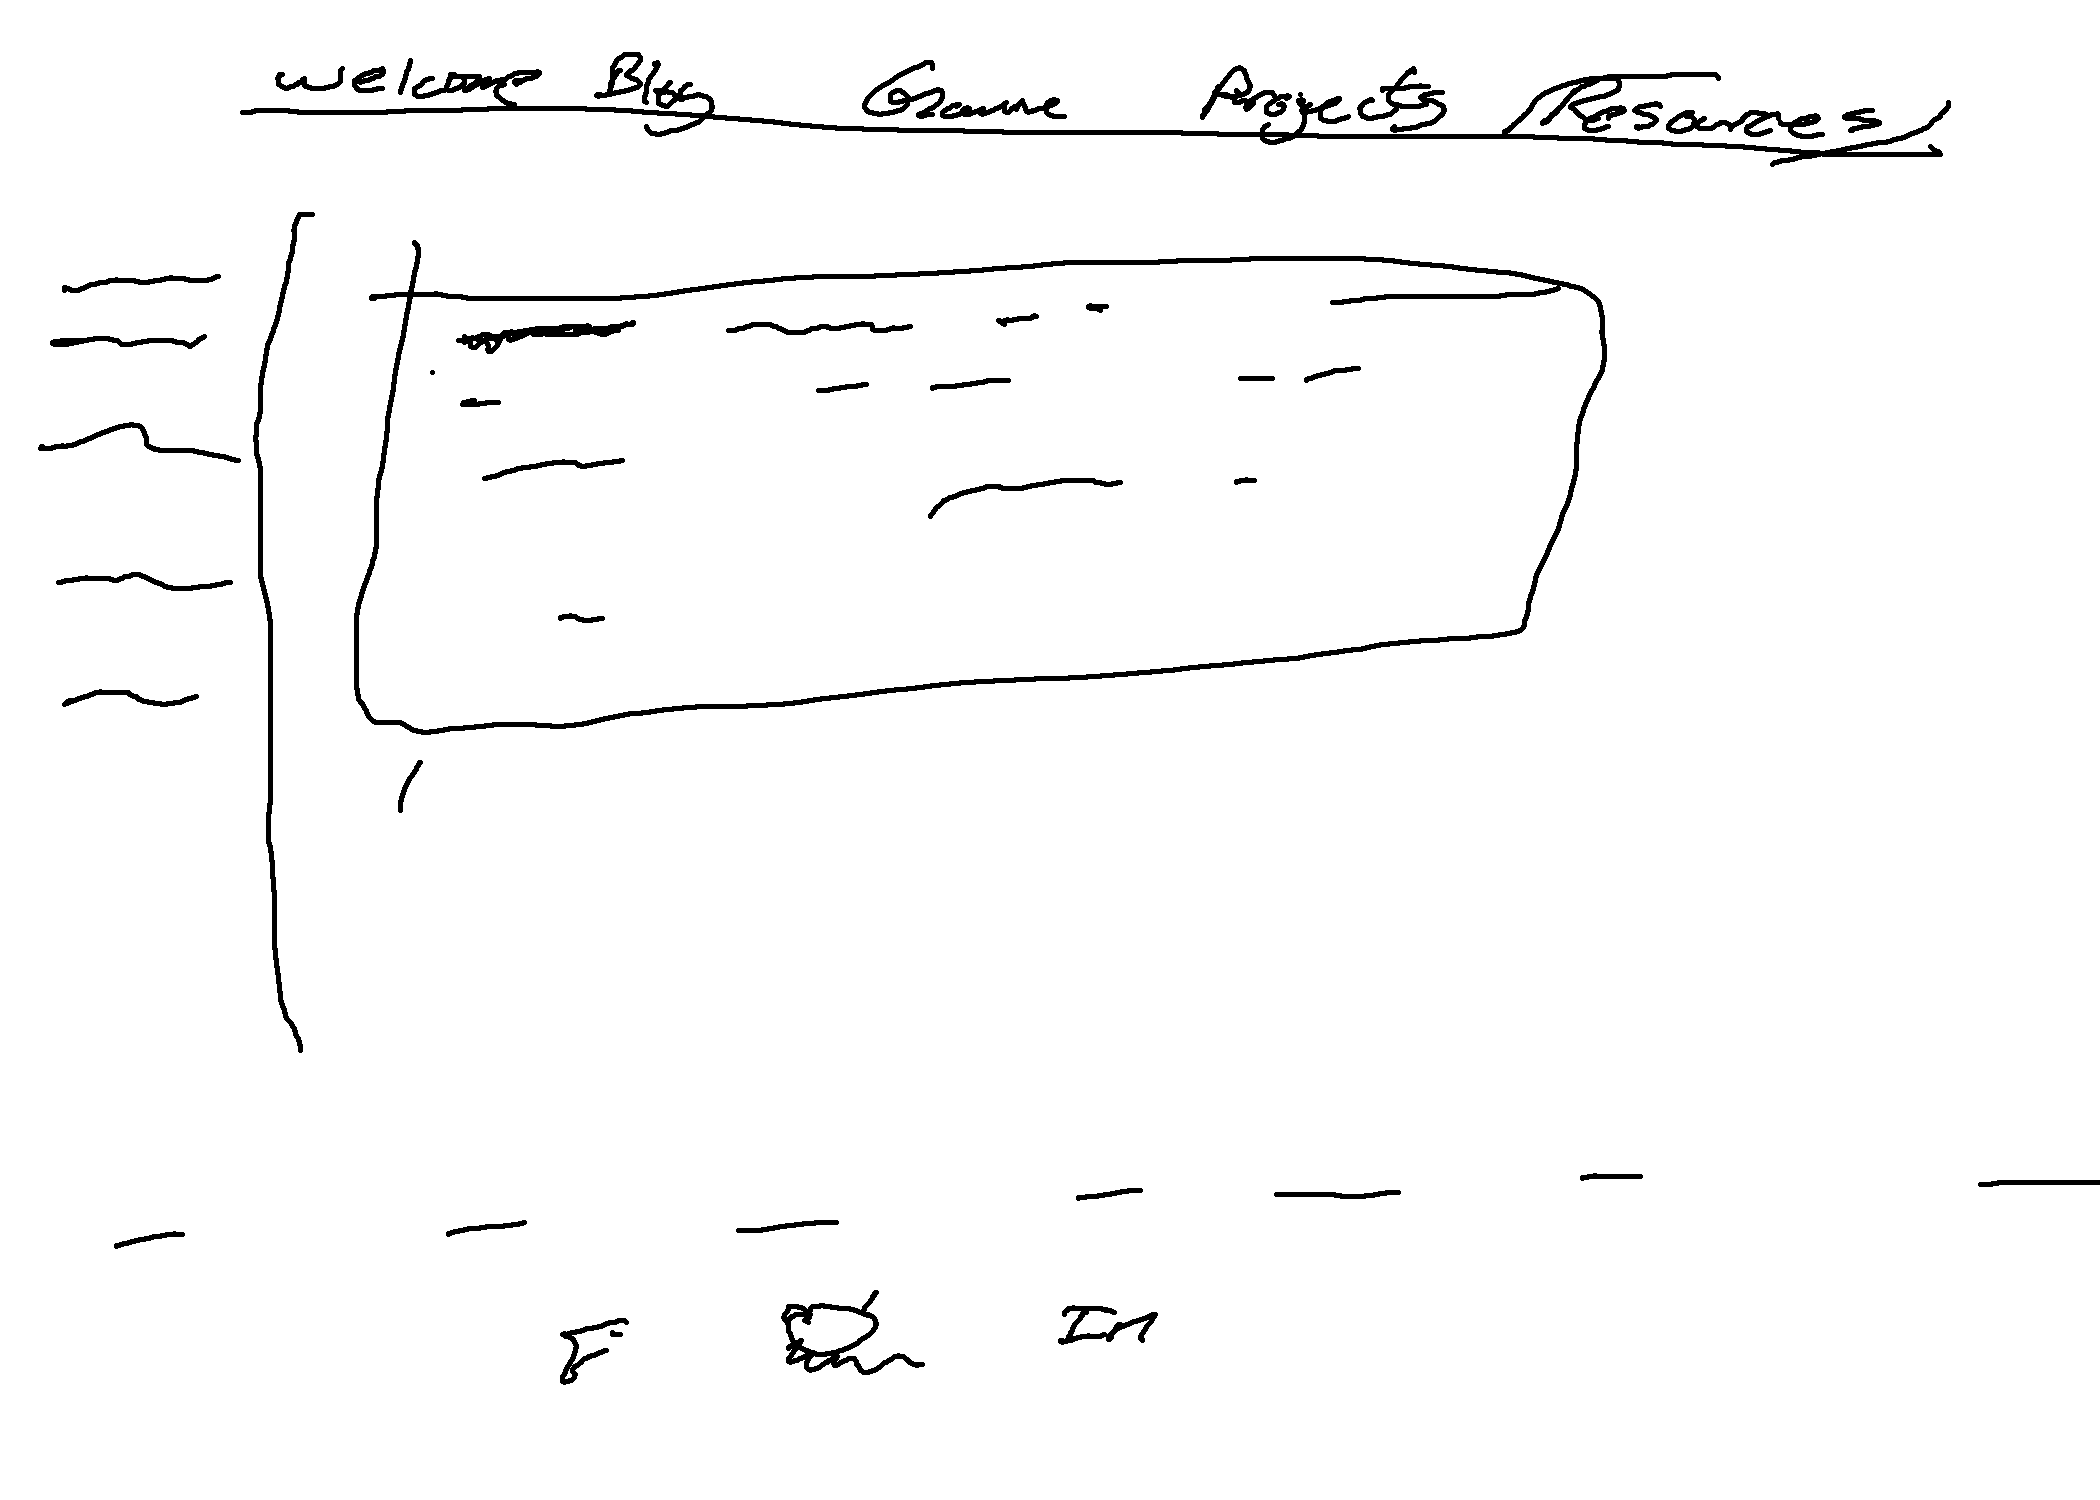 Welcome Blog Game Projects Resources
F In